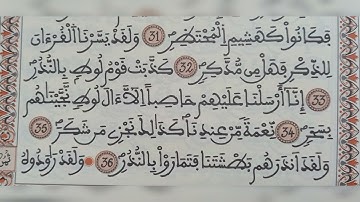 فَكَانُوا كَهَشِيمِ الْمُحْتَظِرِ 31 وَلَقَدْ يَسَّرْنَا الْقُرْءَانَ
لِلذِّكْرِ فَهَلْ مِن مُّدَّكِرٍ 32 كَذَّبَتْ قَوْمُ لُوطٍ بِالنُّذُرِ
33 إِنَّا أَرْسَلْنَا عَلَيْهِمْ حَاصِباً اِلَّا ءَالَ لُوطٍ نَّجَّيْنَاهُم
بِسَحَرٍ 34 نِّعْمَةً مِّنْ عِندِنَا كَذَالِكَ نَجْزِي مَن شَكَرَ 35
وَلَقَدَ اَنذَرَهُم بَطْشَتَنَا فَتَمَارَوْا بِالنُّذُرِ 36 وَلَقَدْ رَاوَدُوهُ